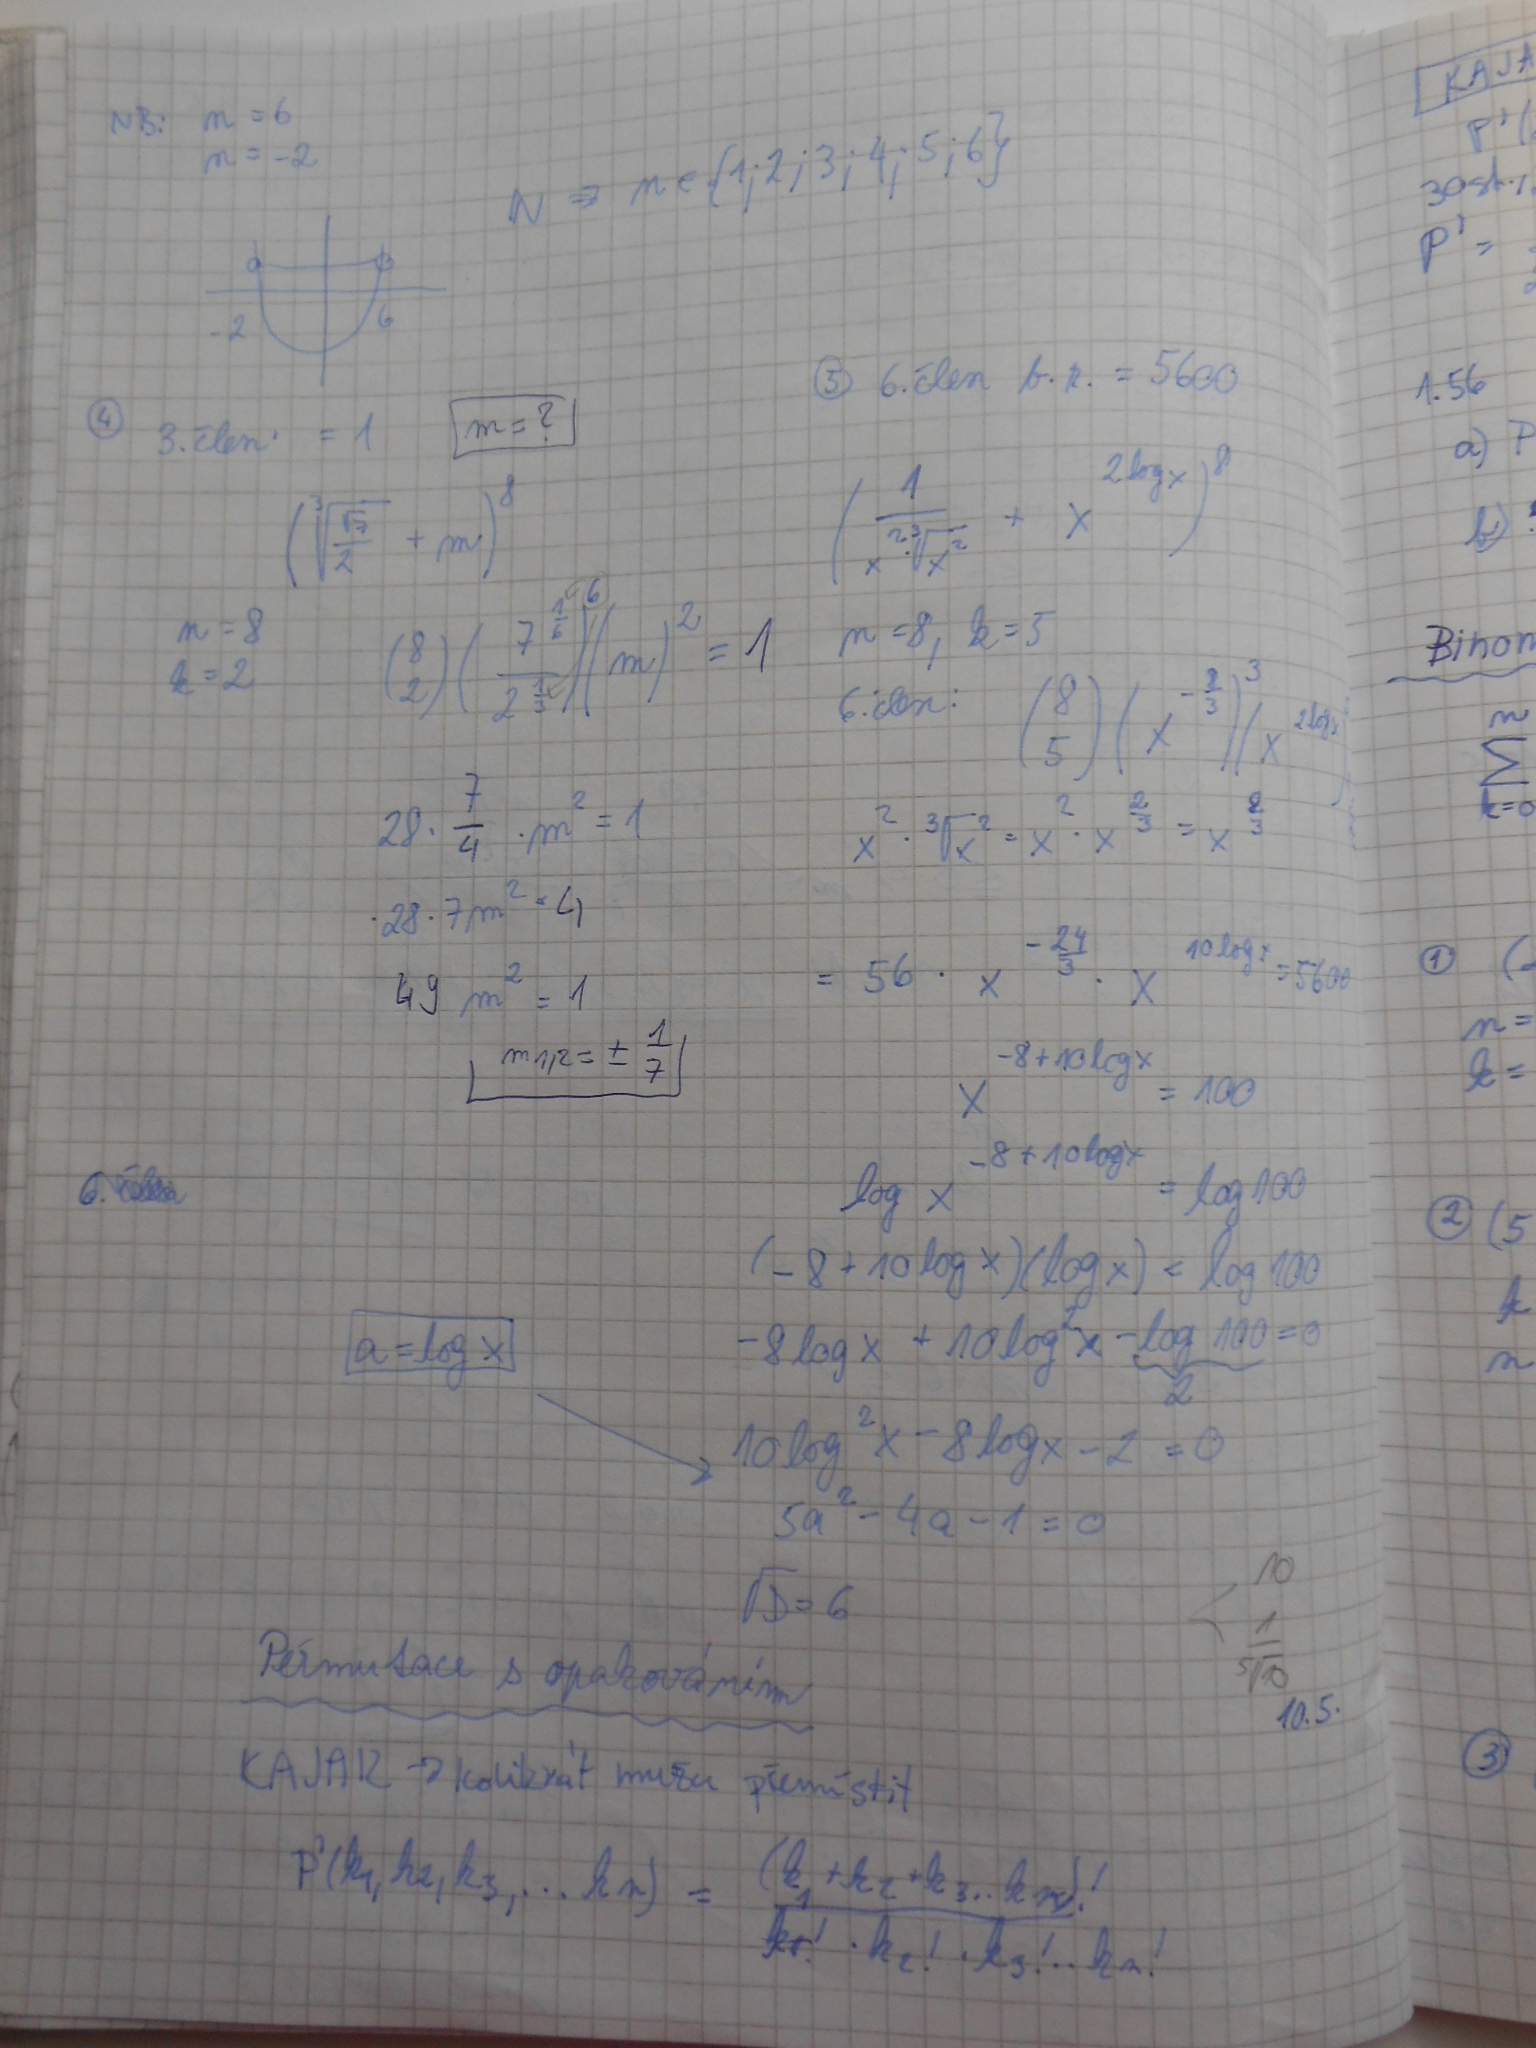 NB: n = 6
n = -2
N ⇒ n ∈ {1;2;3;4;5;6}
-2 6
④ 3. člen = 1 m = ?
(∛(√7/2) + m)^8
n = 8
k = 2
(8 2)(7^(1/6)/2^(1/3))^6 (m)^2 = 1
28 · 7/4 · m^2 = 1
28 · 7m^2 = 4
49 m^2 = 1
m1,2 = ± 1/7
6. člen
⑤ 6. člen b.r. = 5600
(1/(x^2·∛x^2) + x^(2logx))^8
n = 8, k = 5
6. člen: (8 5)(x^(-8/3))^3 (x^(2logx)
x^2 · ∛x^2 = x^2 · x^(2/3) = x^(8/3)
= 56 · x^(-24/3) · x^(10logx) = 5600
x^(-8+10logx) = 100
log x^(-8+10logx) = log100
(-8+10logx)(logx) = log100
-8logx + 10log^2x - log100 = 0
2
a = logx
10log^2x - 8logx - 2 = 0
5a^2 - 4a - 1 = 0
√D = 6
10
1/⁵√10
10.5.
Permutace s opakováním
KAJAK → kolikrát můžu přemístit
P'(k1, k2, k3, ... kn) = (k1+k2+k3..kn)!/(k1! · k2! · k3!..kn!)
KAJA
P'(
P' =
1.56
a) P
b)
Binom
n
Σ
k=0
① (
n =
k =
② (5
k
n
③